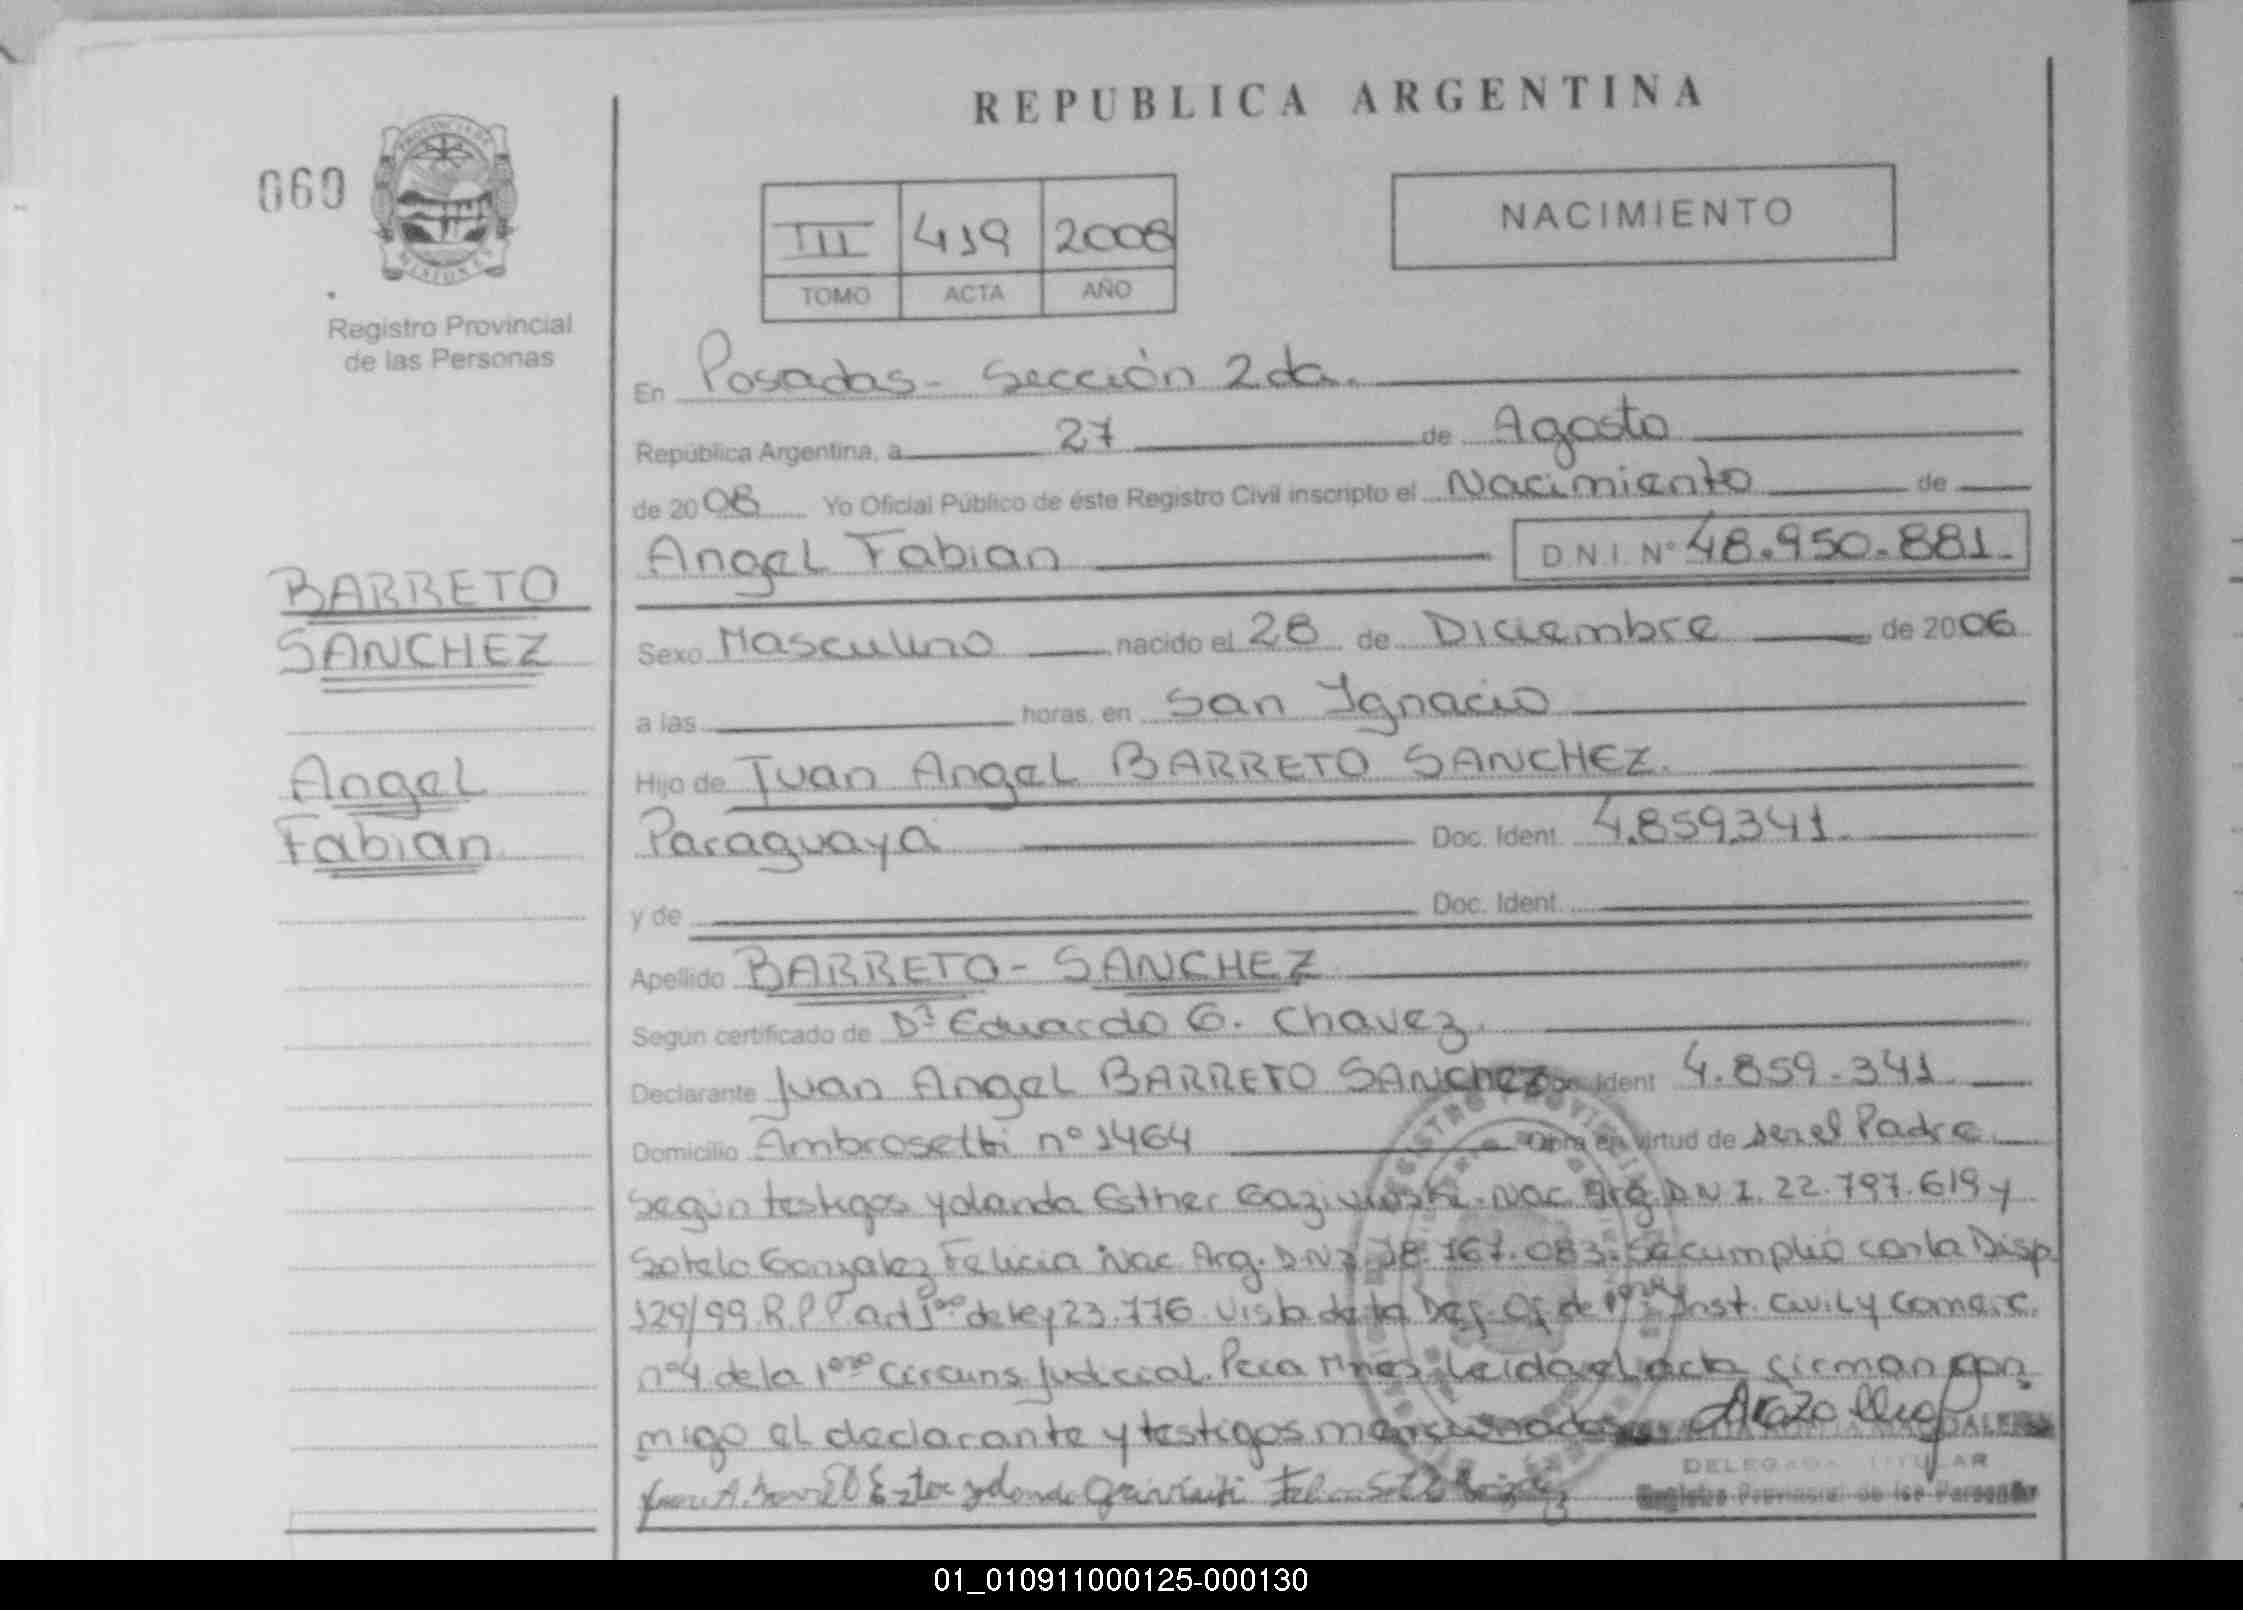 REPUBLICA ARGENTINA
060
PROVINCIA DE
MISIONES
Registro Provincial
de las Personas
III 419 2008
TOMO ACTA AÑO
NACIMIENTO
En Posadas - Sección 2da.
República Argentina, a 27 de Agosto
de 2008 Yo Oficial Público de éste Registro Civil inscripto el Nacimiento de
Angel Fabian D N I Nº 48.950.881.
BARRETO
SANCHEZ
Angel
Fabian
Sexo Masculino nacido el 28 de Diciembre de 2006
a las horas, en San Ignacio
Hijo de Juan Angel BARRETO SANCHEZ.
Paraguaya Doc. Ident. 4.859.341.
y de Doc. Ident.
Apellido BARRETO - SANCHEZ
Según certificado de Dr Eduardo G. Chavez.
Declarante Juan Angel BARRETO SANchez Ident 4.859.341
Domicilio Ambrosetti nº 1464 Obra en virtud de ser el Padre
según testigos Yolanda Esther Nac Arg. D N I. 22.797.619 y
Sotelo Gonzalez Felicia Nac Arg. D N I 18.767.083. Se cumplió con la Disp
129/99. R.P.P. art 1ero de ley 23.776 Vista de la Def. Of de 1era Inst. Civil y Comerc.
nº4 de la 1era Circuns. Judicial. Pcia Mnes. Leida el acta firman con
migo el declarante y testigos mencionados
DELEGADA TITULAR
Registro Provincial de las Personas
01_010911000125-000130